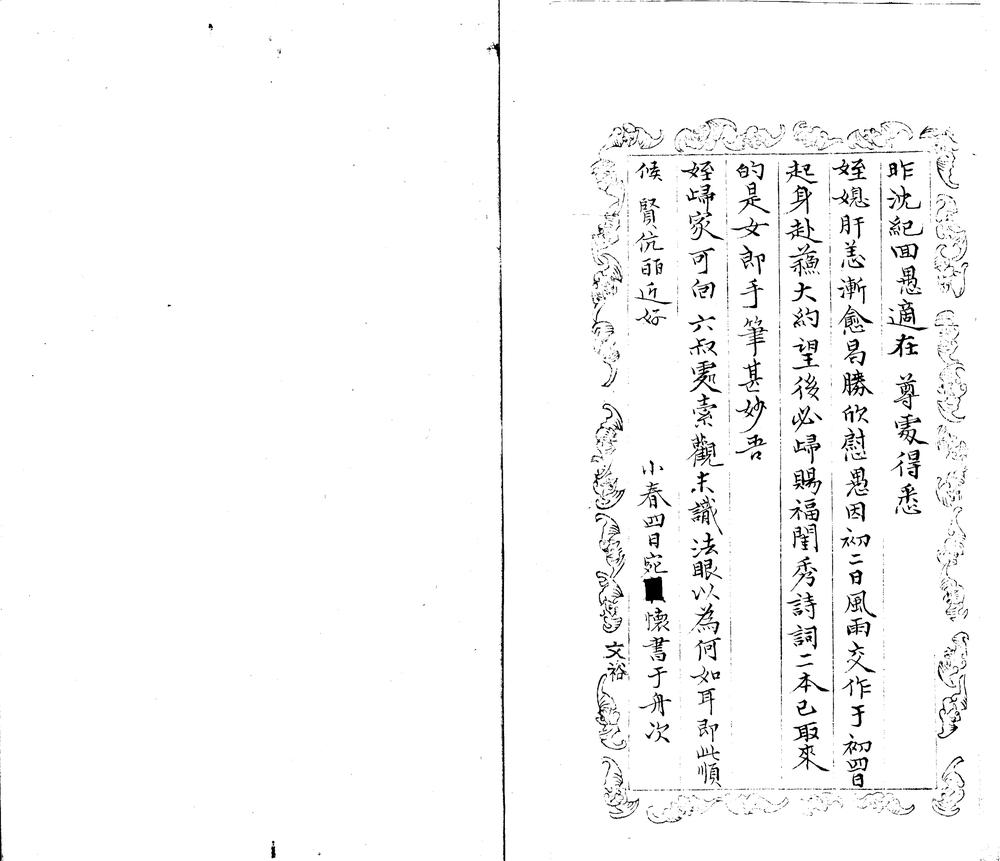 昨沈紀回愚適在 尊處得悉
姪媳肝恙漸愈曷勝欣慰愚因初二日風雨交作于初四日
起身赴蘓大約望後必歸賜福閨秀詩詞二本已取來
的是女郎手筆甚妙吾
姪歸家可向 六叔處索觀未識法眼以為何如耳即此順
候 賢伉丽近好
小春四日宛懷書于舟次
文裕